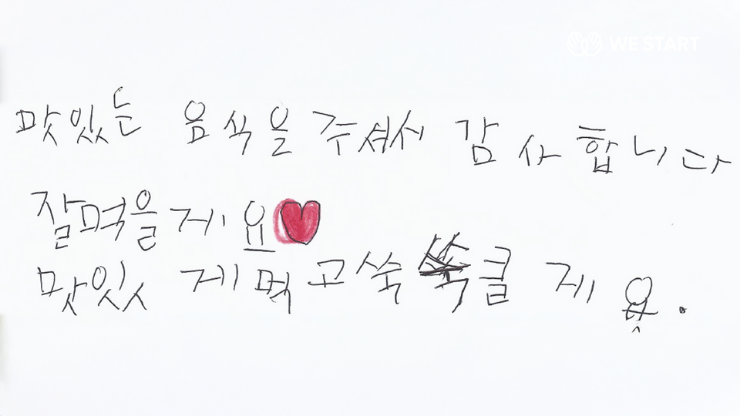 WE START
맛있는 음식을 주셔서 감사합니다
잘먹을게요
맛잇게먹고쑥쑥클게요.